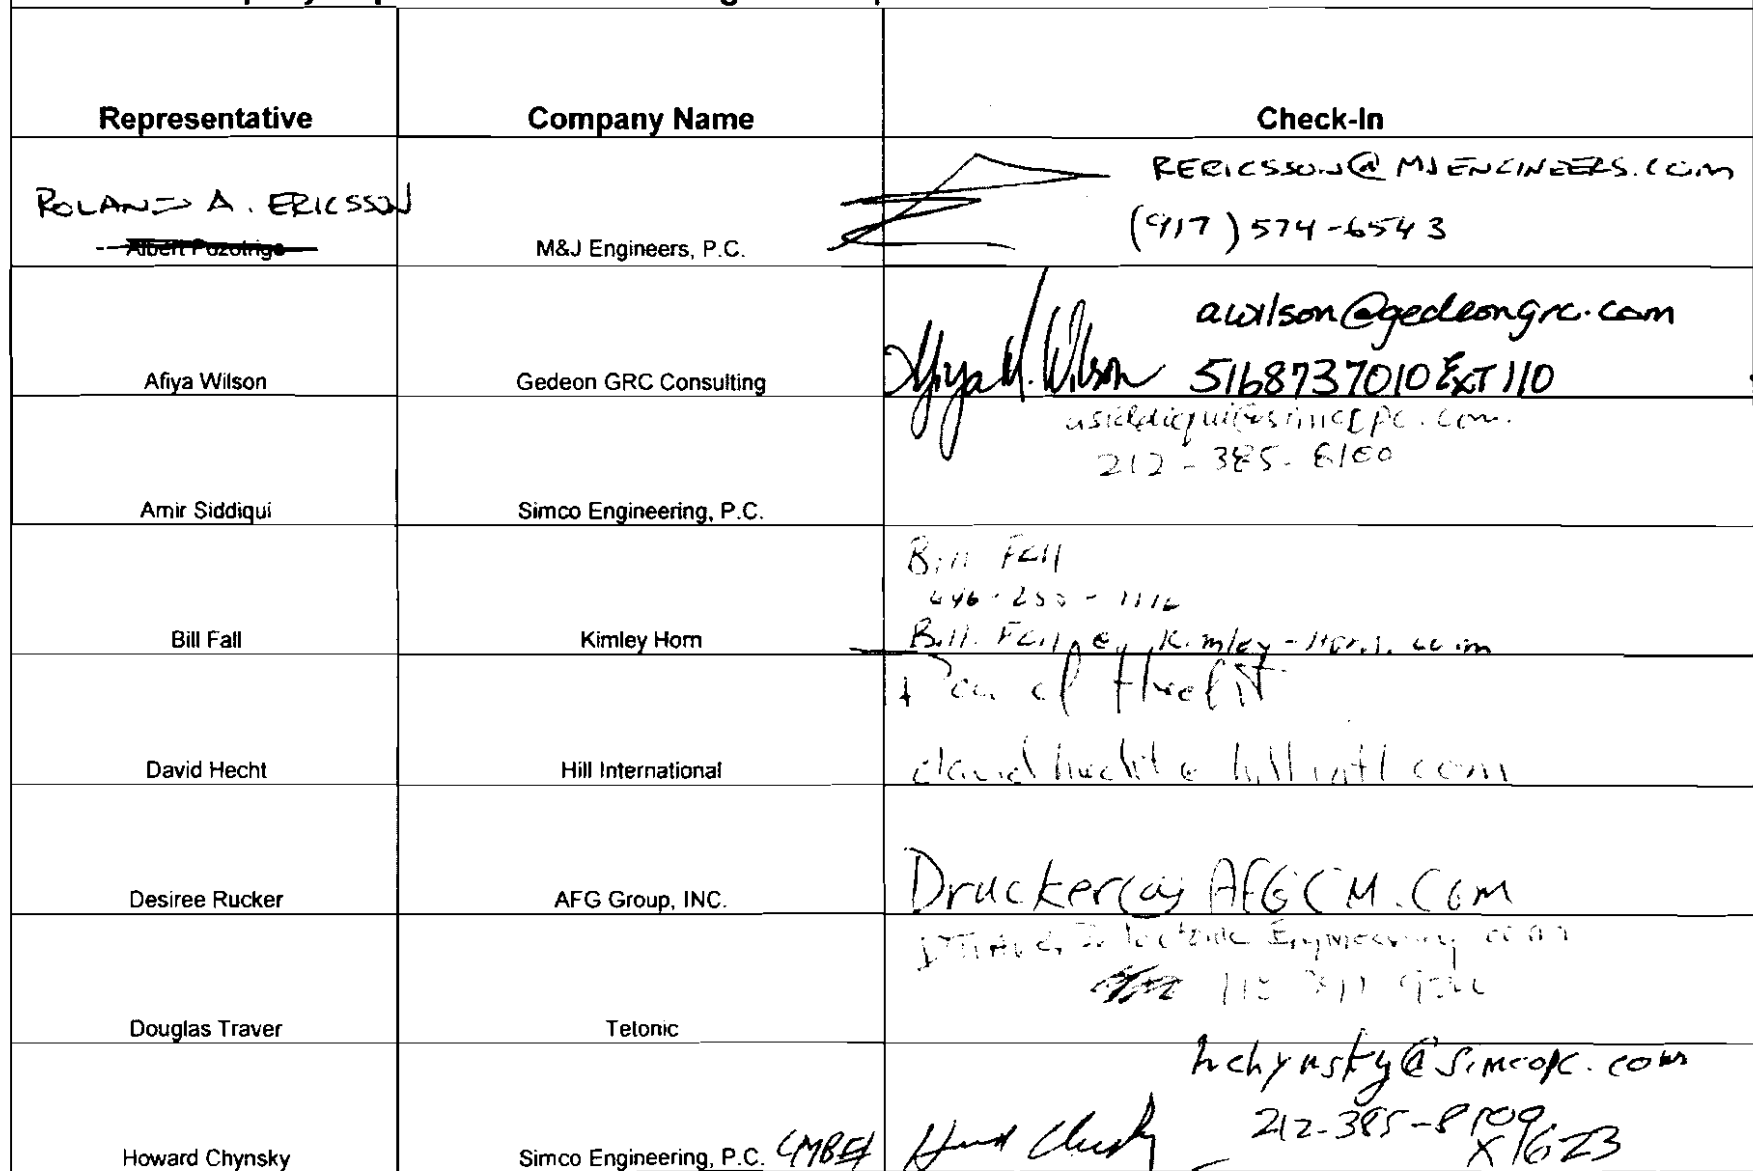 Representative
Company Name
Check-In
ROLAND A. ERICSSON
Albert Pozotrigo
M&J Engineers, P.C.
RERICSSON@MJENGINEERS.COM
(917) 574-6543
Afiya Wilson
Gedeon GRC Consulting
Afiya M. Wilson
awilson@gedeongrc.com
5168737010 EXT 110
Amir Siddiqui
Simco Engineering, P.C.
asiddiqui@simcopc.com.
212-385-
Bill Fall
Kimley Horn
Bill Fall
Bill.Fall@Kimley-Horn.com
David Hecht
Hill International
Desiree Rucker
AFG Group, INC.
Drucker@AFGCM.Com
Douglas Traver
Tetonic
Engineering com
Howard Chynsky
Simco Engineering, P.C. (MBE)
hchynsky@simcopc.com
212-385-
X1623